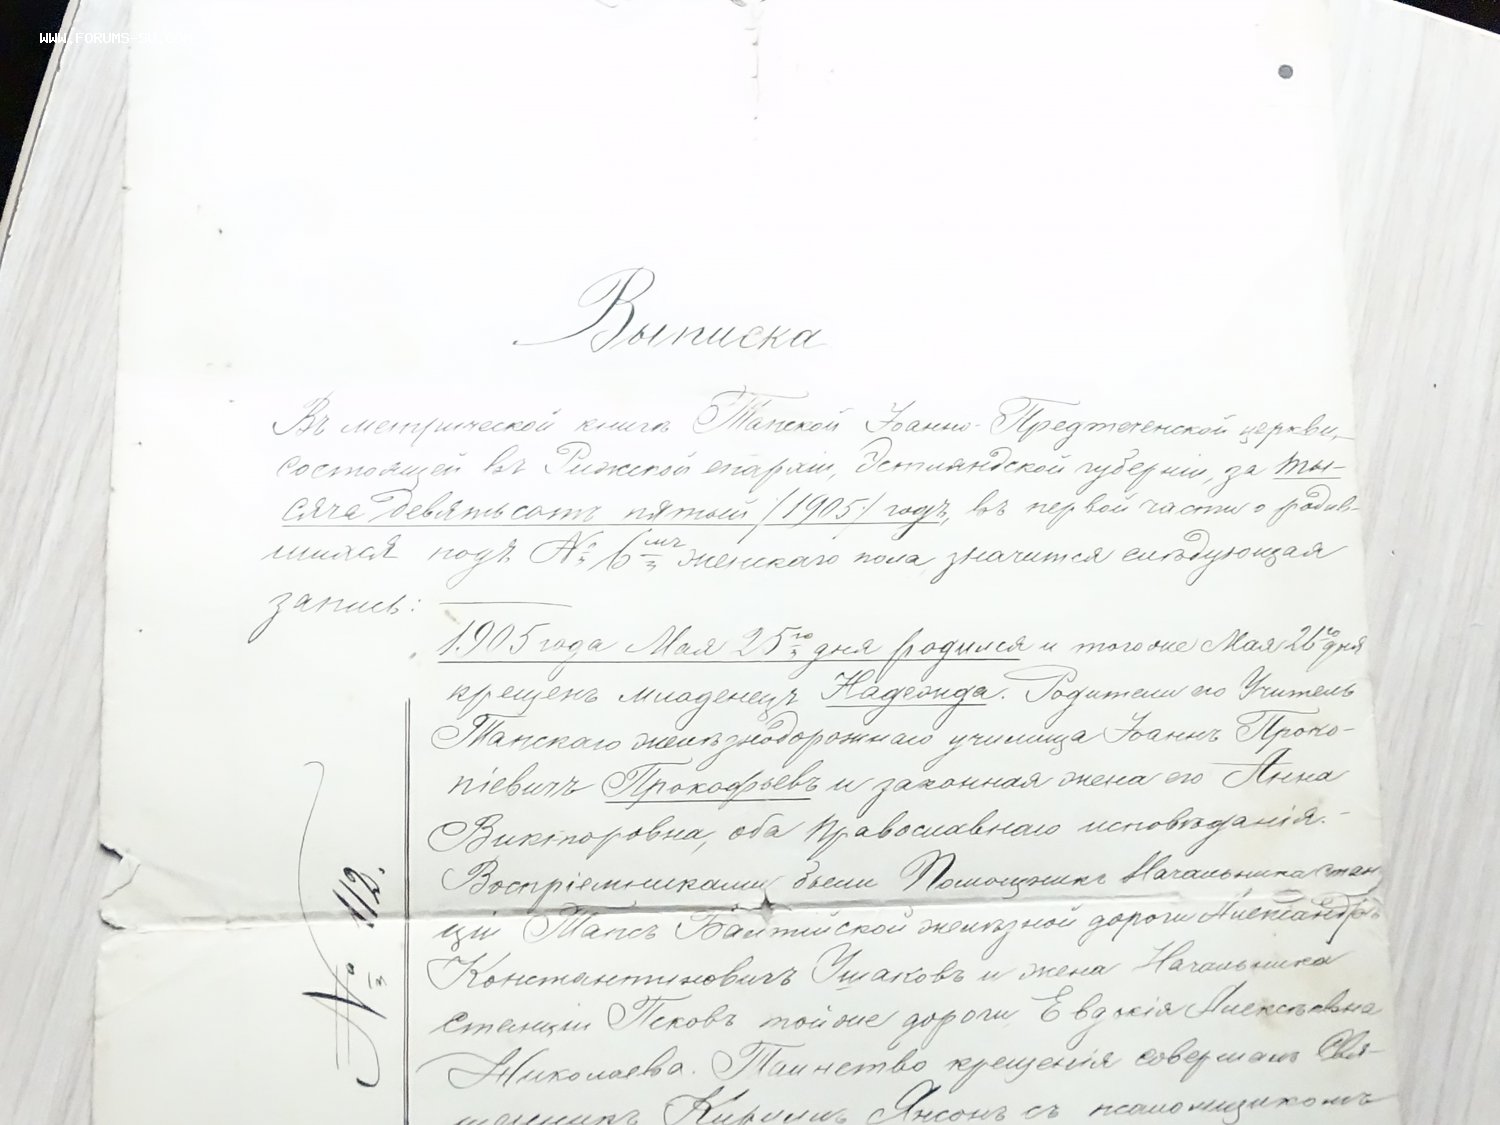 WWW.FORUMS-SU.COM
Выписка
Въ метрической книгѣ Тапской Іоанно-Предтеченской церкви,
состоящей въ Рижской епархіи, Эстляндской губерніи, за ты-
сяча девятьсотъ пятый /1905/ годъ, въ первой части о родив-
шихся подъ № 6мъ женскаго пола, значится слѣдующая
запись:
1905 года Мая 25го дня родился и того же Мая 26го дня
крещенъ младенецъ Надежда. Родители его Учитель
Тапскаго желѣзнодорожнаго училища Іоаннъ Проко-
піевичъ Прокофьевъ и законная жена его Анна
Викторовна, оба православнаго исповѣданія.
Воспріемниками были Помощникъ Начальника стан-
ціи Тапсъ Балтійской желѣзной дороги Александръ
Константиновичъ Ушаковъ и жена Начальника
станціи Псковъ той же дороги Евдокія Алексѣевна
Николаева. Таинство крещенія совершалъ Свя-
щенникъ Кириллъ Янсонъ съ псаломщикомъ
№ 112.